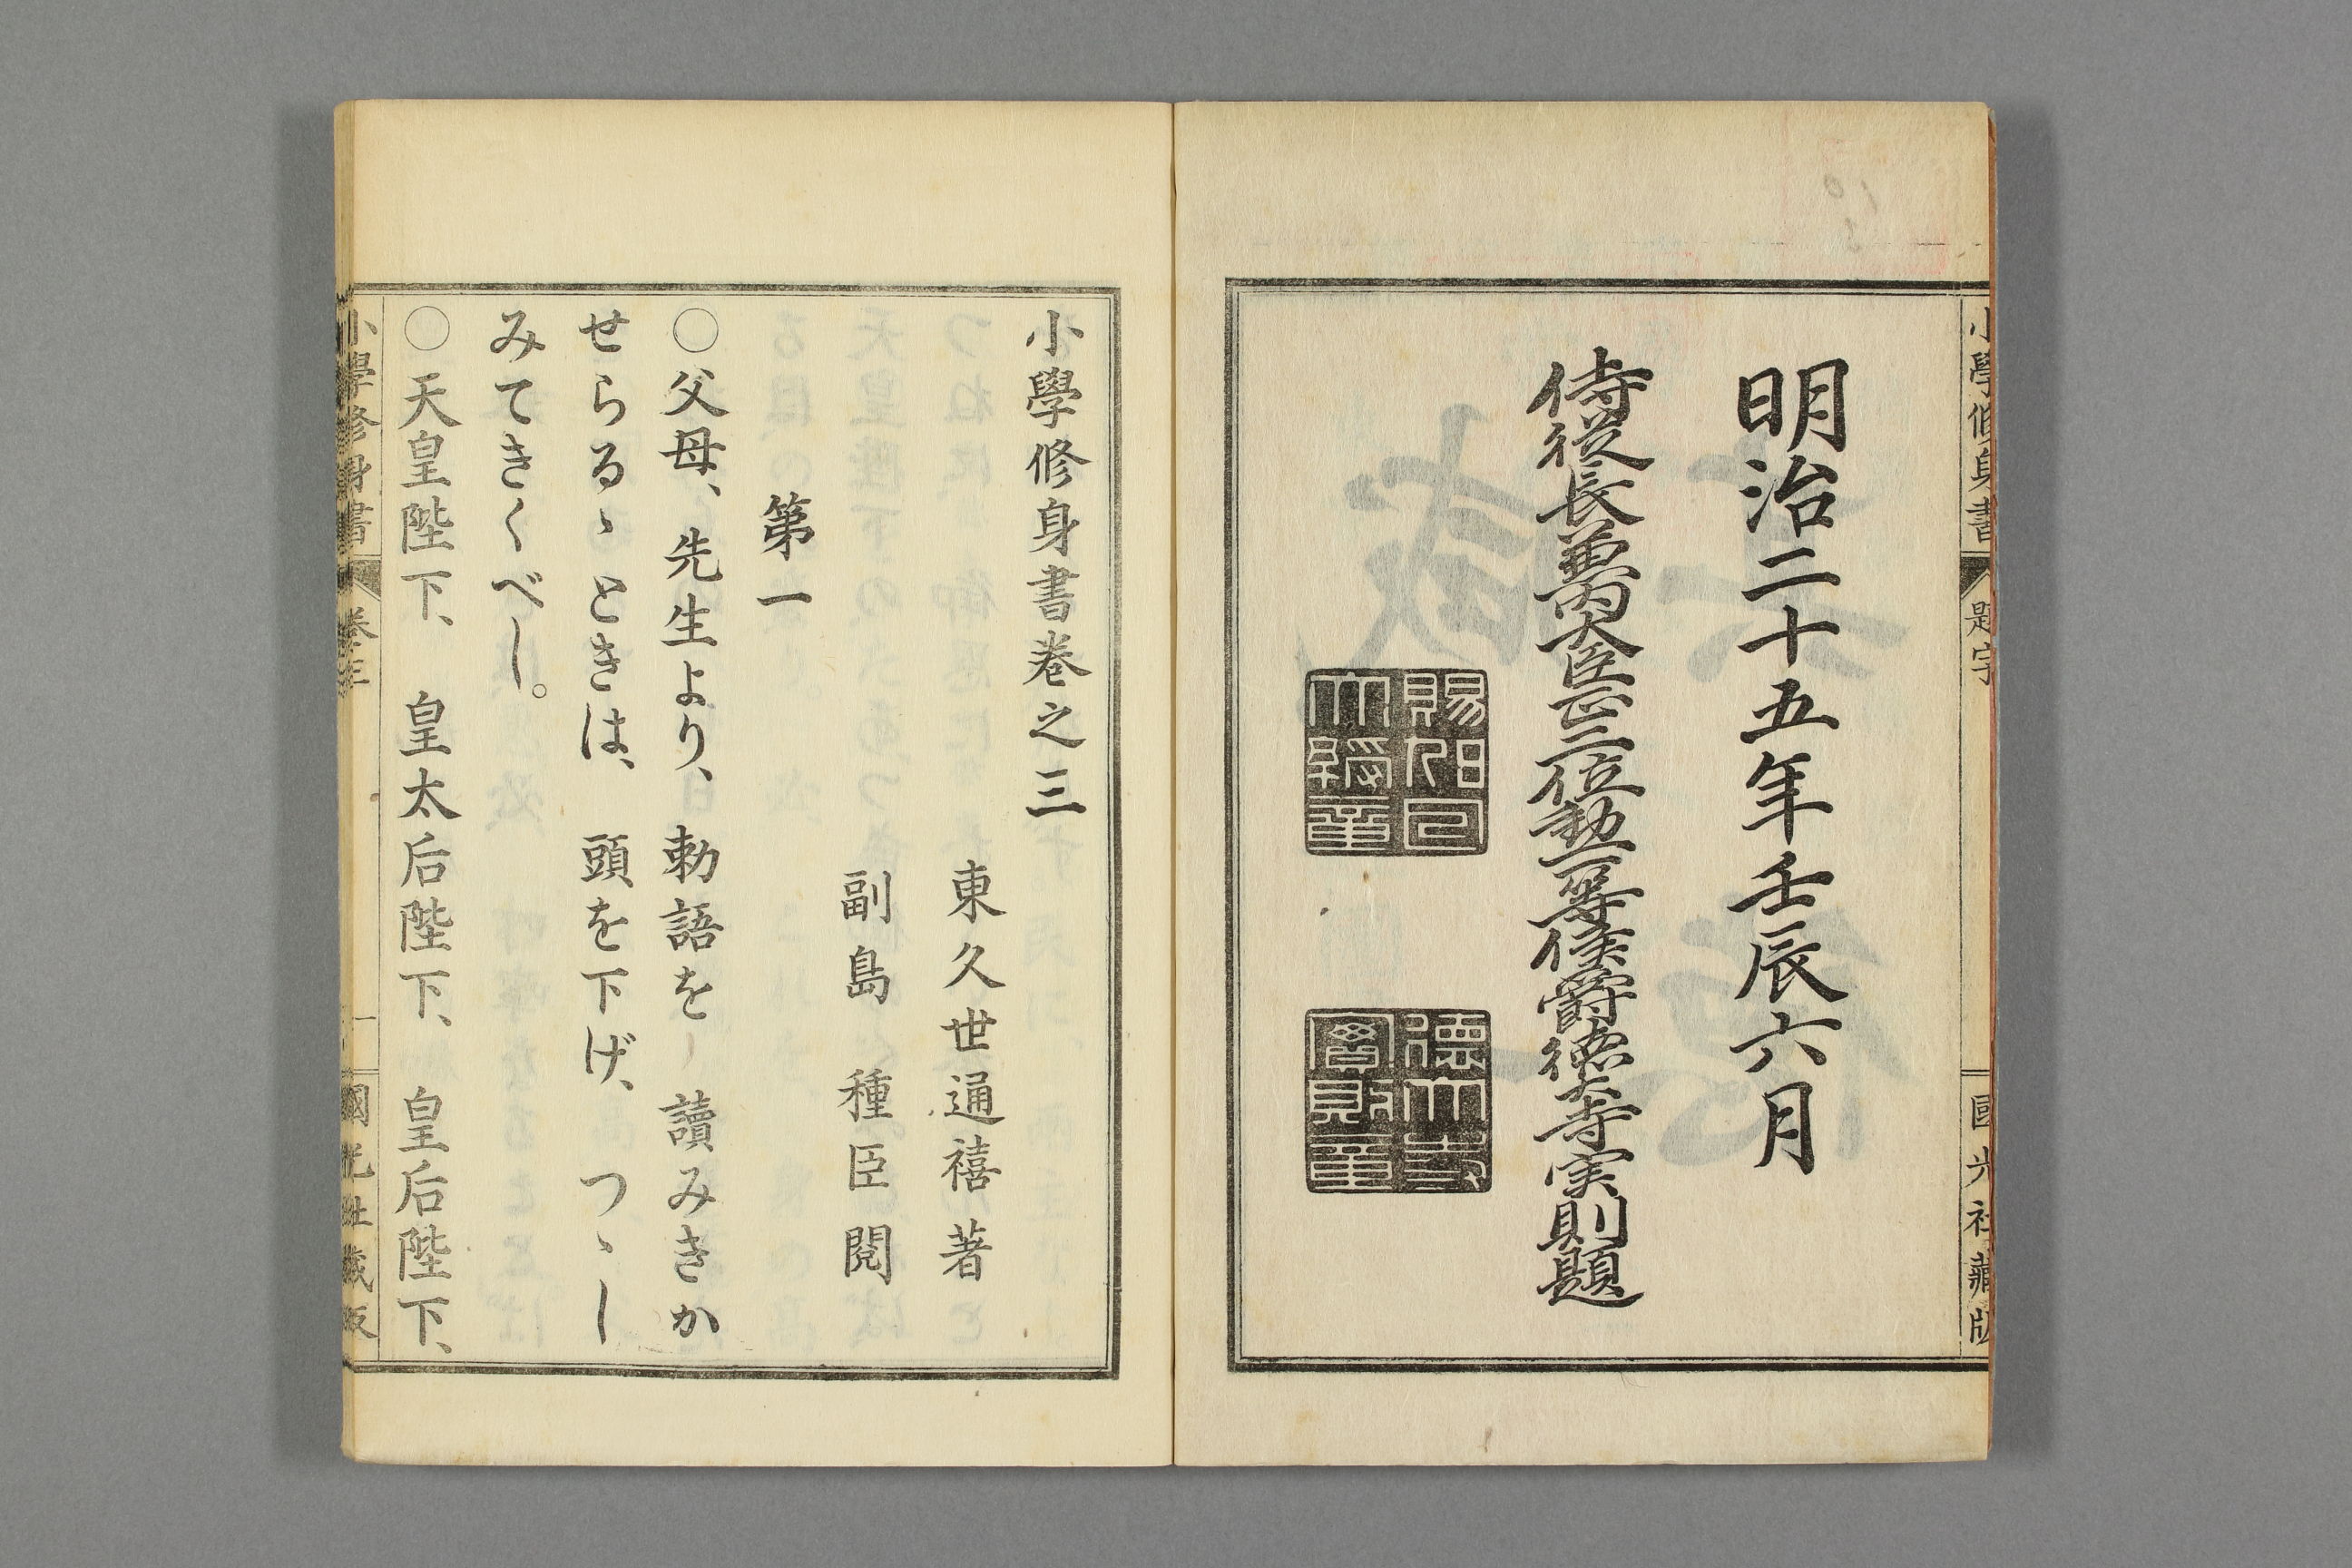 小學修身書
題字
國光社藏版
明治二十五年壬辰六月
侍従長兼内大臣正二位勲一等侯爵徳大寺実則題
小學修身書巻之三
東久世通禧著
副島種臣閲
第一
〇父母、先生より、勅語を讀みきか
せらるゝときは、頭を下げ、つゝし
みてきくべし。
〇天皇陛下、皇太后陛下、皇后陛下、
小學修身書
巻三
一
國光社藏版